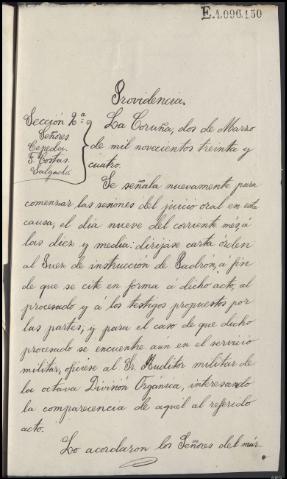 E.1.096.150
Providencia.
Sección 2ª
Señores
Cepeda
F. Costas
Salgado
La Coruña, dos de Marzo
de mil novecientos treinta y
cuatro.
Se señala nuevamente para
comenzar las sesiones del juicio oral en esta
causa, el dia nueve del corriente mes á
las diez y media: dirijase carta orden
al Juez de instrucción de Padron, á fin
de que se cite en forma á dicho acto, al
procesado y á los testigos propuestos por
las partes; y para el caso de que dicho
procesado se encuentre aun en el servicio
militar, oficiese al Sr. Auditor militar de
la octava División Organica, interesando
la comparecencia de aquél al referido
acto.
Lo acordaron los Señores del mar